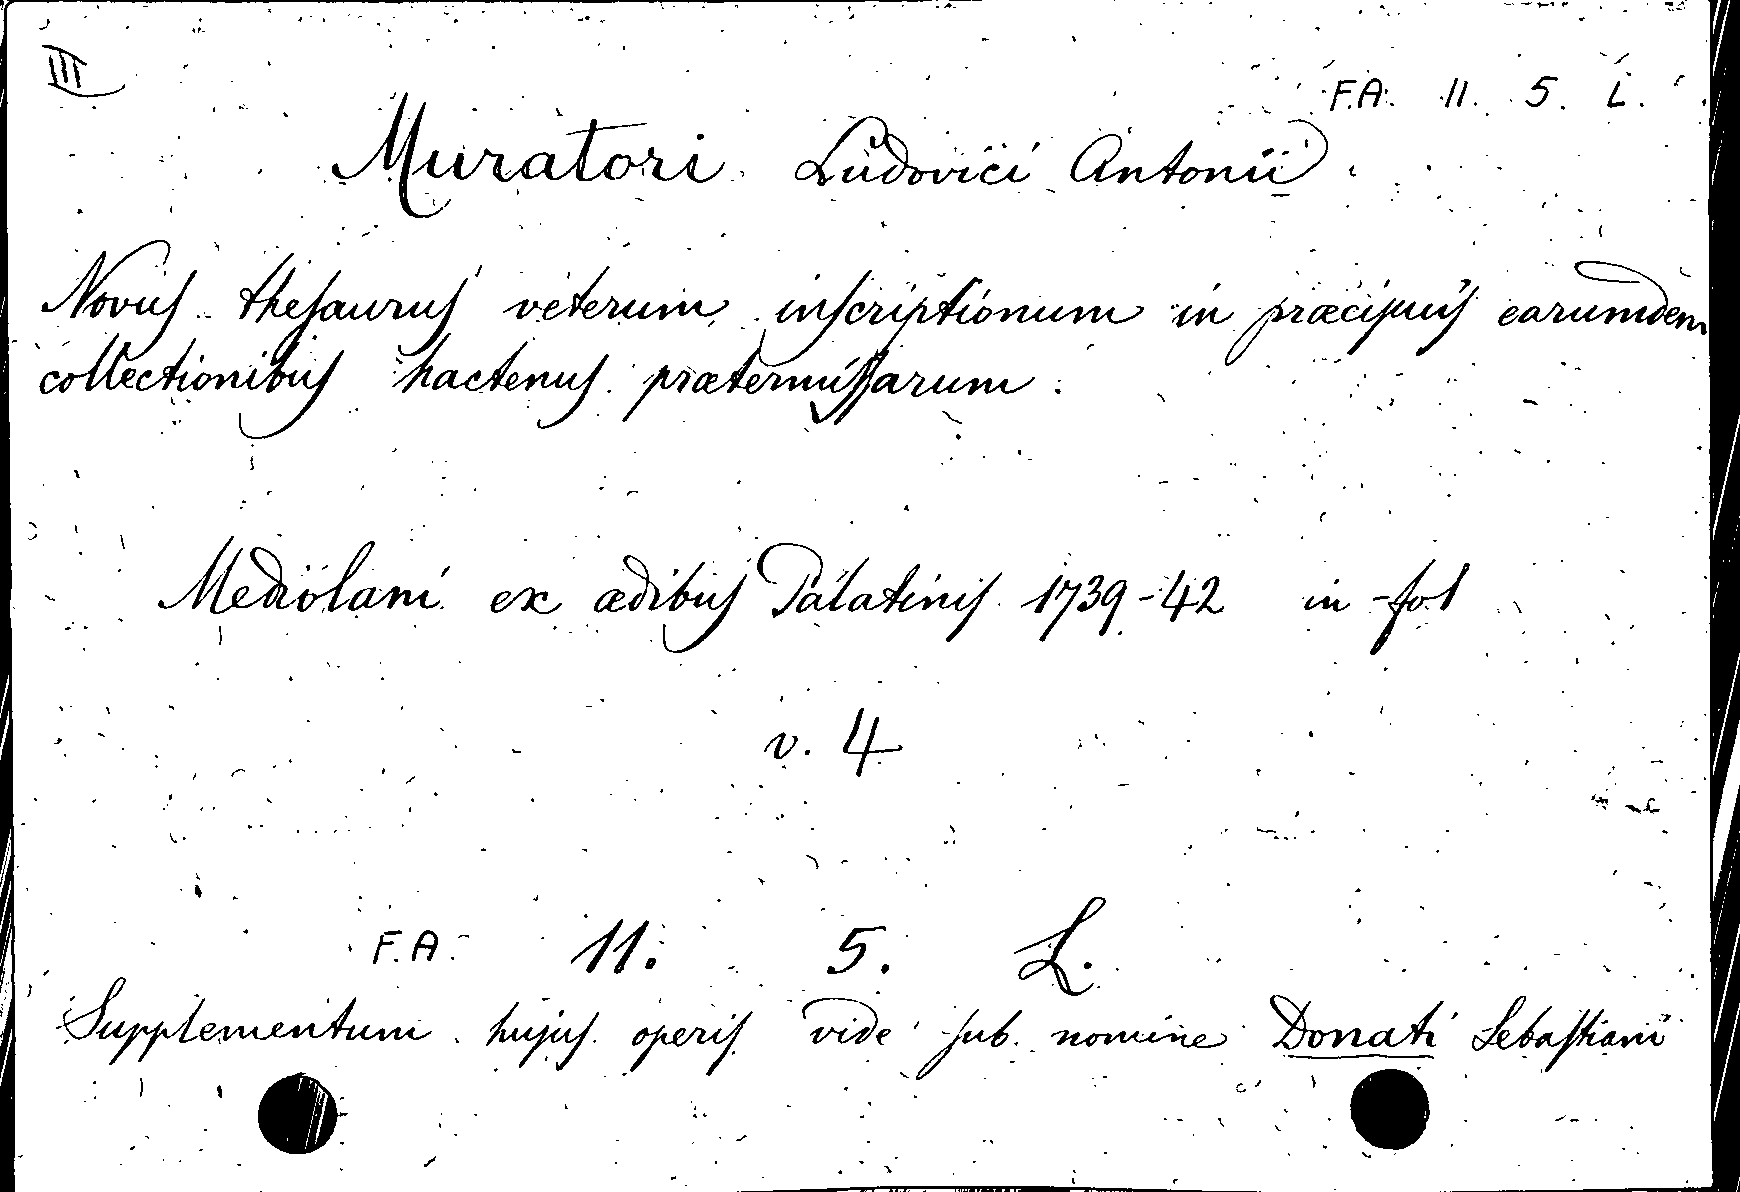 III
F.A. 11. 5. L.
Muratori Ludovici Antonii
Novus thesaurus veterum inscriptionum in præcipuis earumdem
collectionibus hactenus prætermissarum.
Mediolani ex ædibus Palatinis 1739-42 in-fol
v. 4
F.A. 11. 5. L.
Supplementum hujus operis vide sub nomine Donati Sebastiani